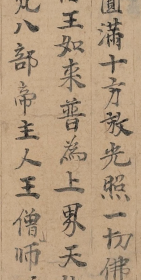 圓滿十方放光照一切佛
王如来普為上界天
八部帝主人王僧師